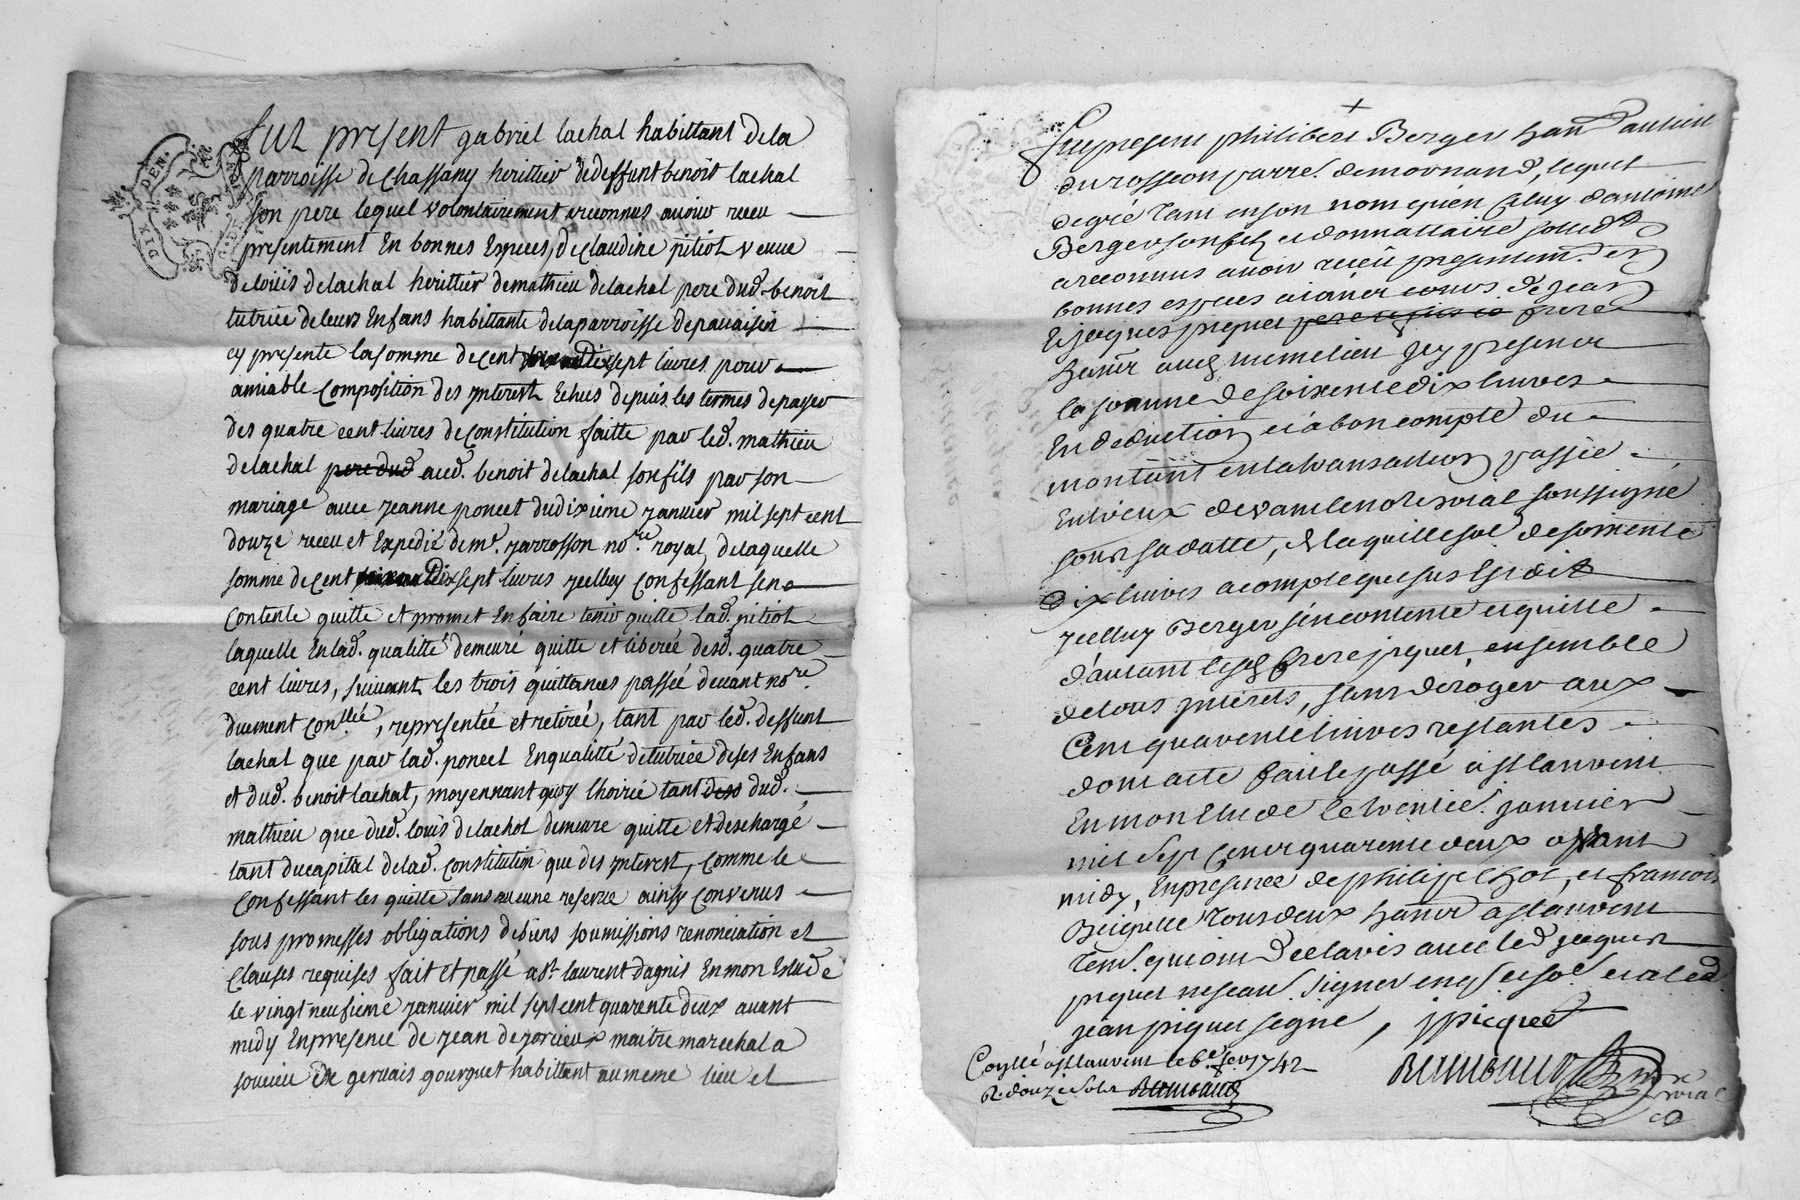 DIX DEN.
fut present gabriel lachal habittant dela
parroisse de Chassany herittier de deffunt benoit lachal
son pere lequel volontairement reconnus avoir receu
presentement En bonnes Especes, de Claudine pitiot veuve
de loüis delachal herittier de mathieu delachal pere dud. benoit
tutrice de leurs Enfans habittante dela parroisse de
cy presente la somme de cent dix sept livres pour
amiable Composition des ynterest Echus depuis les termes de payer
des quatre cent livres de Constitution faitte par led. mathieu
delachal pere dud. aud. benoit delachal son fils par son
mariage avec jeanne poncet du dixieme janvier mil sept cent
douze receu et Expedié de me. jarrosson nore. royal, de laquelle
somme de cent dix sept livres jcelluy Confessant sen
Contente quitte et promet En faire tenir quitte lad. pitiot
laquelle En lad. qualitté demeure quitte et liberée desd. quatre
cent livres, suivant les trois quittances passée devant nore.
duement Conllée, representée et retirée, tant par led. deffunt
lachal que par lad. poncet En qualitté de tutrice de ses Enfans
et dud. benoit lachal, moyennant quoy lhoirie tant dud.
mathieu que dud. loüis delachal demeure quitte et deschargé
tant du capital de lad. Constitution que des ynterest, Comme le
Confessant les quitte sans aucune reserve ainsy Convenus
sous promesses obligations de biens soumissions renonciation et
Clauses requises fait et passé a st. laurent dagnis En mon Etude
le vingt neufieme janvier mil sept cent quarente deux avant
midy En presence de jean dejorcieux maitre marechal a
soucieu et gervais gourguet habittant au meme lieu et
fut present philibert Berger
du rosseon parre. de mornand, lequel
de gré tant en son nom qu'en Celuy d'antoine
Berger son fils et donnattaire
a reconnus avoir receü presentemt. en
bonnes especes ajant cours de jean
Et jacques piquet frere
habitt. aud. meme lieu jcy present
la somme de soixente dix livres
En deduction et a bon compte du
montant en la transaction passée
Entreux devant le nore. roial soussigné
sous sa datte, de laquelle somme de soixente
dix livres a compte que sus est dit
jcelluy Berger s'en contente et quitte
d'autant lesd. frere piquet ensemble
de tous ynterets, sans deroger aux
Cent quarente livres restantes
dont acte fait et passé a st laurent
En mon Etude le trentie. janvier
mil sept Cent quarente deux avant
midy, En presence de philippe, et francois
tous deux habitt. a st laurent
temt. qui ont declaré avec led. jacques
piquet ne scavoir signer enquis et somé. et a led.
jean piquet signé, J picquet
Conllé a st laurent le 6e. fevr 1742
R. douze sols
nore
roial